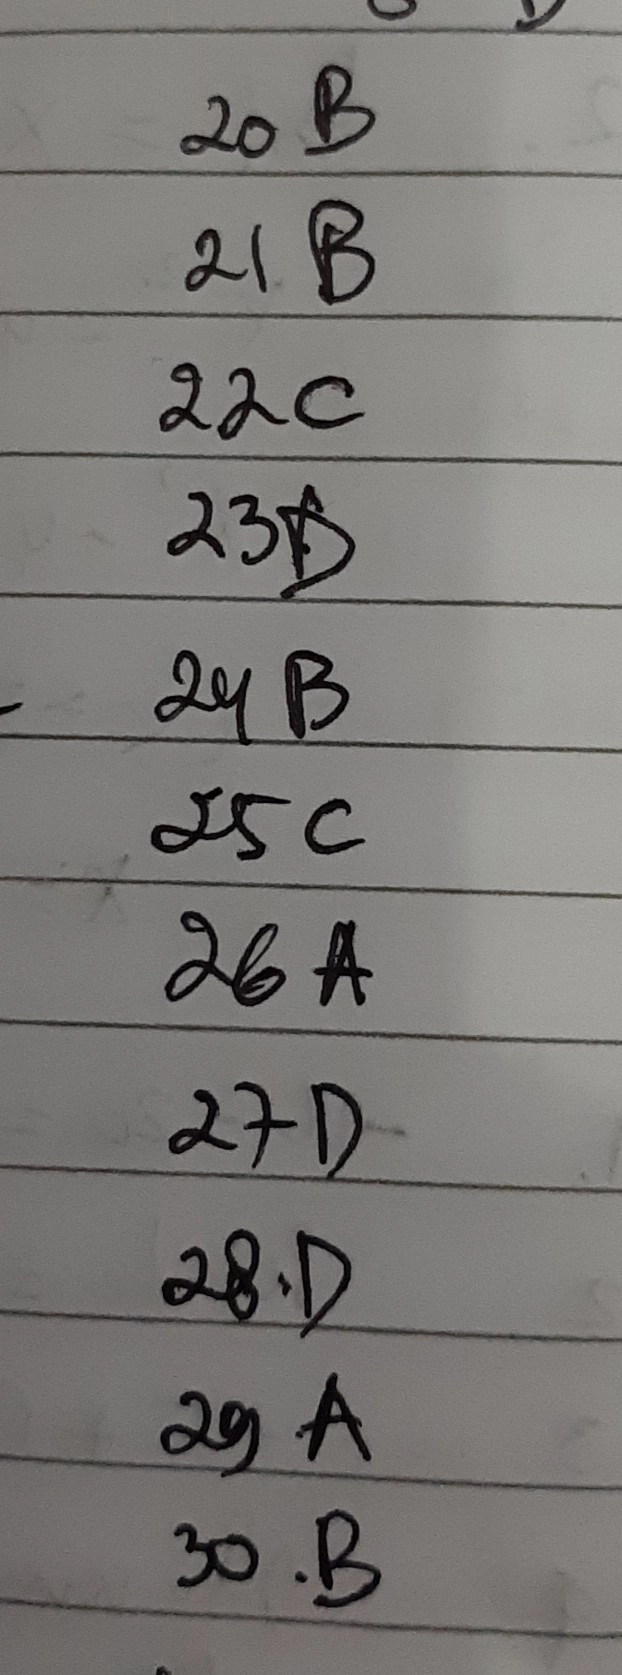 20 B
21 B
22 C
23 D
24 B
25 C
26 A
27 D
28. D
29 A
30. B